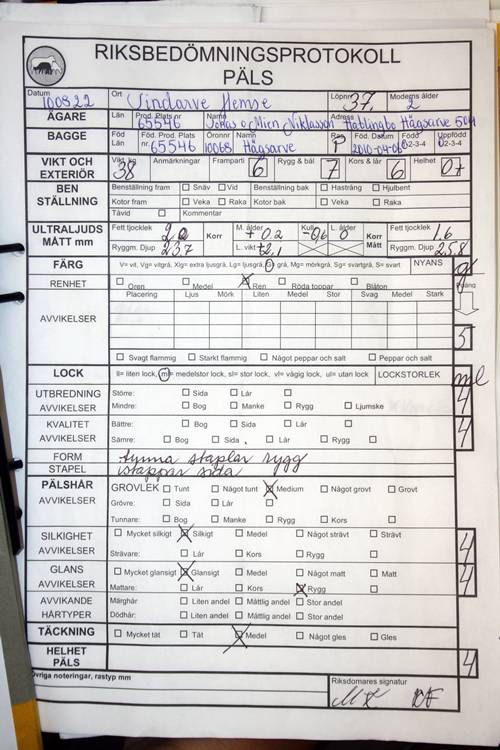 RIKSBEDÖMNINGSPROTOKOLL
PÄLS
Datum Ort Löpnr Moderns ålder
100822 Vindarve Hemse 37, 2
ÄGARE Län Prod. Plats nr Namn Adress
65546 Niklasson Hatlingbo Hägsarve 504
BAGGE Föd Län Föd. Prod. Plats nr. Öronnr Namn Ras Föd. Datum Född 0-2-3-4 Uppfödd 0-2-3-4
65546 10068 Hägsarve P 2010-04-06
VIKT OCH EXTERIÖR Vikt kg 38 Anmärkningar Framparti 6 Rygg & bål 7 Kors & lår 6 Helhet
BEN STÄLLNING
Benställning fram Snäv Vid Benställning bak Hastrång Hjulbent
Kotor fram Veka Raka Kotor bak Veka Raka
Tåvid Kommentar
ULTRALJUDS MÅTT mm
Fett tjocklek 2,0 Korr M. ålder + 0,2 Kull -0,6 L. ålder 0 Korr Mått Fett tjocklek 1,6
Ryggm. Djup 23,7 L. vikt +2,1 Ryggm. Djup 25,8
FÄRG V= vit, Vg= vitgrå, Xlg= extra ljusgrå, Lg= ljusgrå, G= grå, Mg= mörkgrå, Sg= svartgrå, S= svart NYANS
RENHET Oren Medel Ren Röda toppar Blåton Poäng
AVVIKELSER Placering Ljus Mörk Liten Medel Stor Svag Medel Stark
5
Svagt flammig Starkt flammig Något peppar och salt Peppar och salt
LOCK ll= liten lock, m= medelstor lock, sl= stor lock, vl= vågig lock, ul= utan lock LOCKSTORLEK ml
UTBREDNING Större: Sida Lår
AVVIKELSER Mindre: Bog Manke Rygg Ljumske 4
KVALITET Bättre: Bog Sida Lår
AVVIKELSER Sämre: Bog Sida Lår Rygg 4
FORM tunna staplar rygg
STAPEL sida
PÄLSHÅR GROVLEK Tunt Något tunt Medium Något grovt Grovt
AVVIKELSER Grövre: Sida Lår
Tunnare: Bog Manke Rygg Kors
SILKIGHET Mycket silkigt Silkigt Medel Något strävt Strävt 4
AVVIKELSER Strävare: Lår Kors Rygg
GLANS Mycket glansigt Glansigt Medel Något matt Matt 4
AVVIKELSER Mattare: Lår Kors Rygg
AVVIKANDE Märghår Liten andel Måttlig andel Stor andel
HÅRTYPER Dödhår: Liten andel Måttlig andel Stor andel
TÄCKNING Mycket tät Tät Medel Något gles Gles
HELHET PÄLS 4
Övriga noteringar, rastyp mm Riksdomares signatur